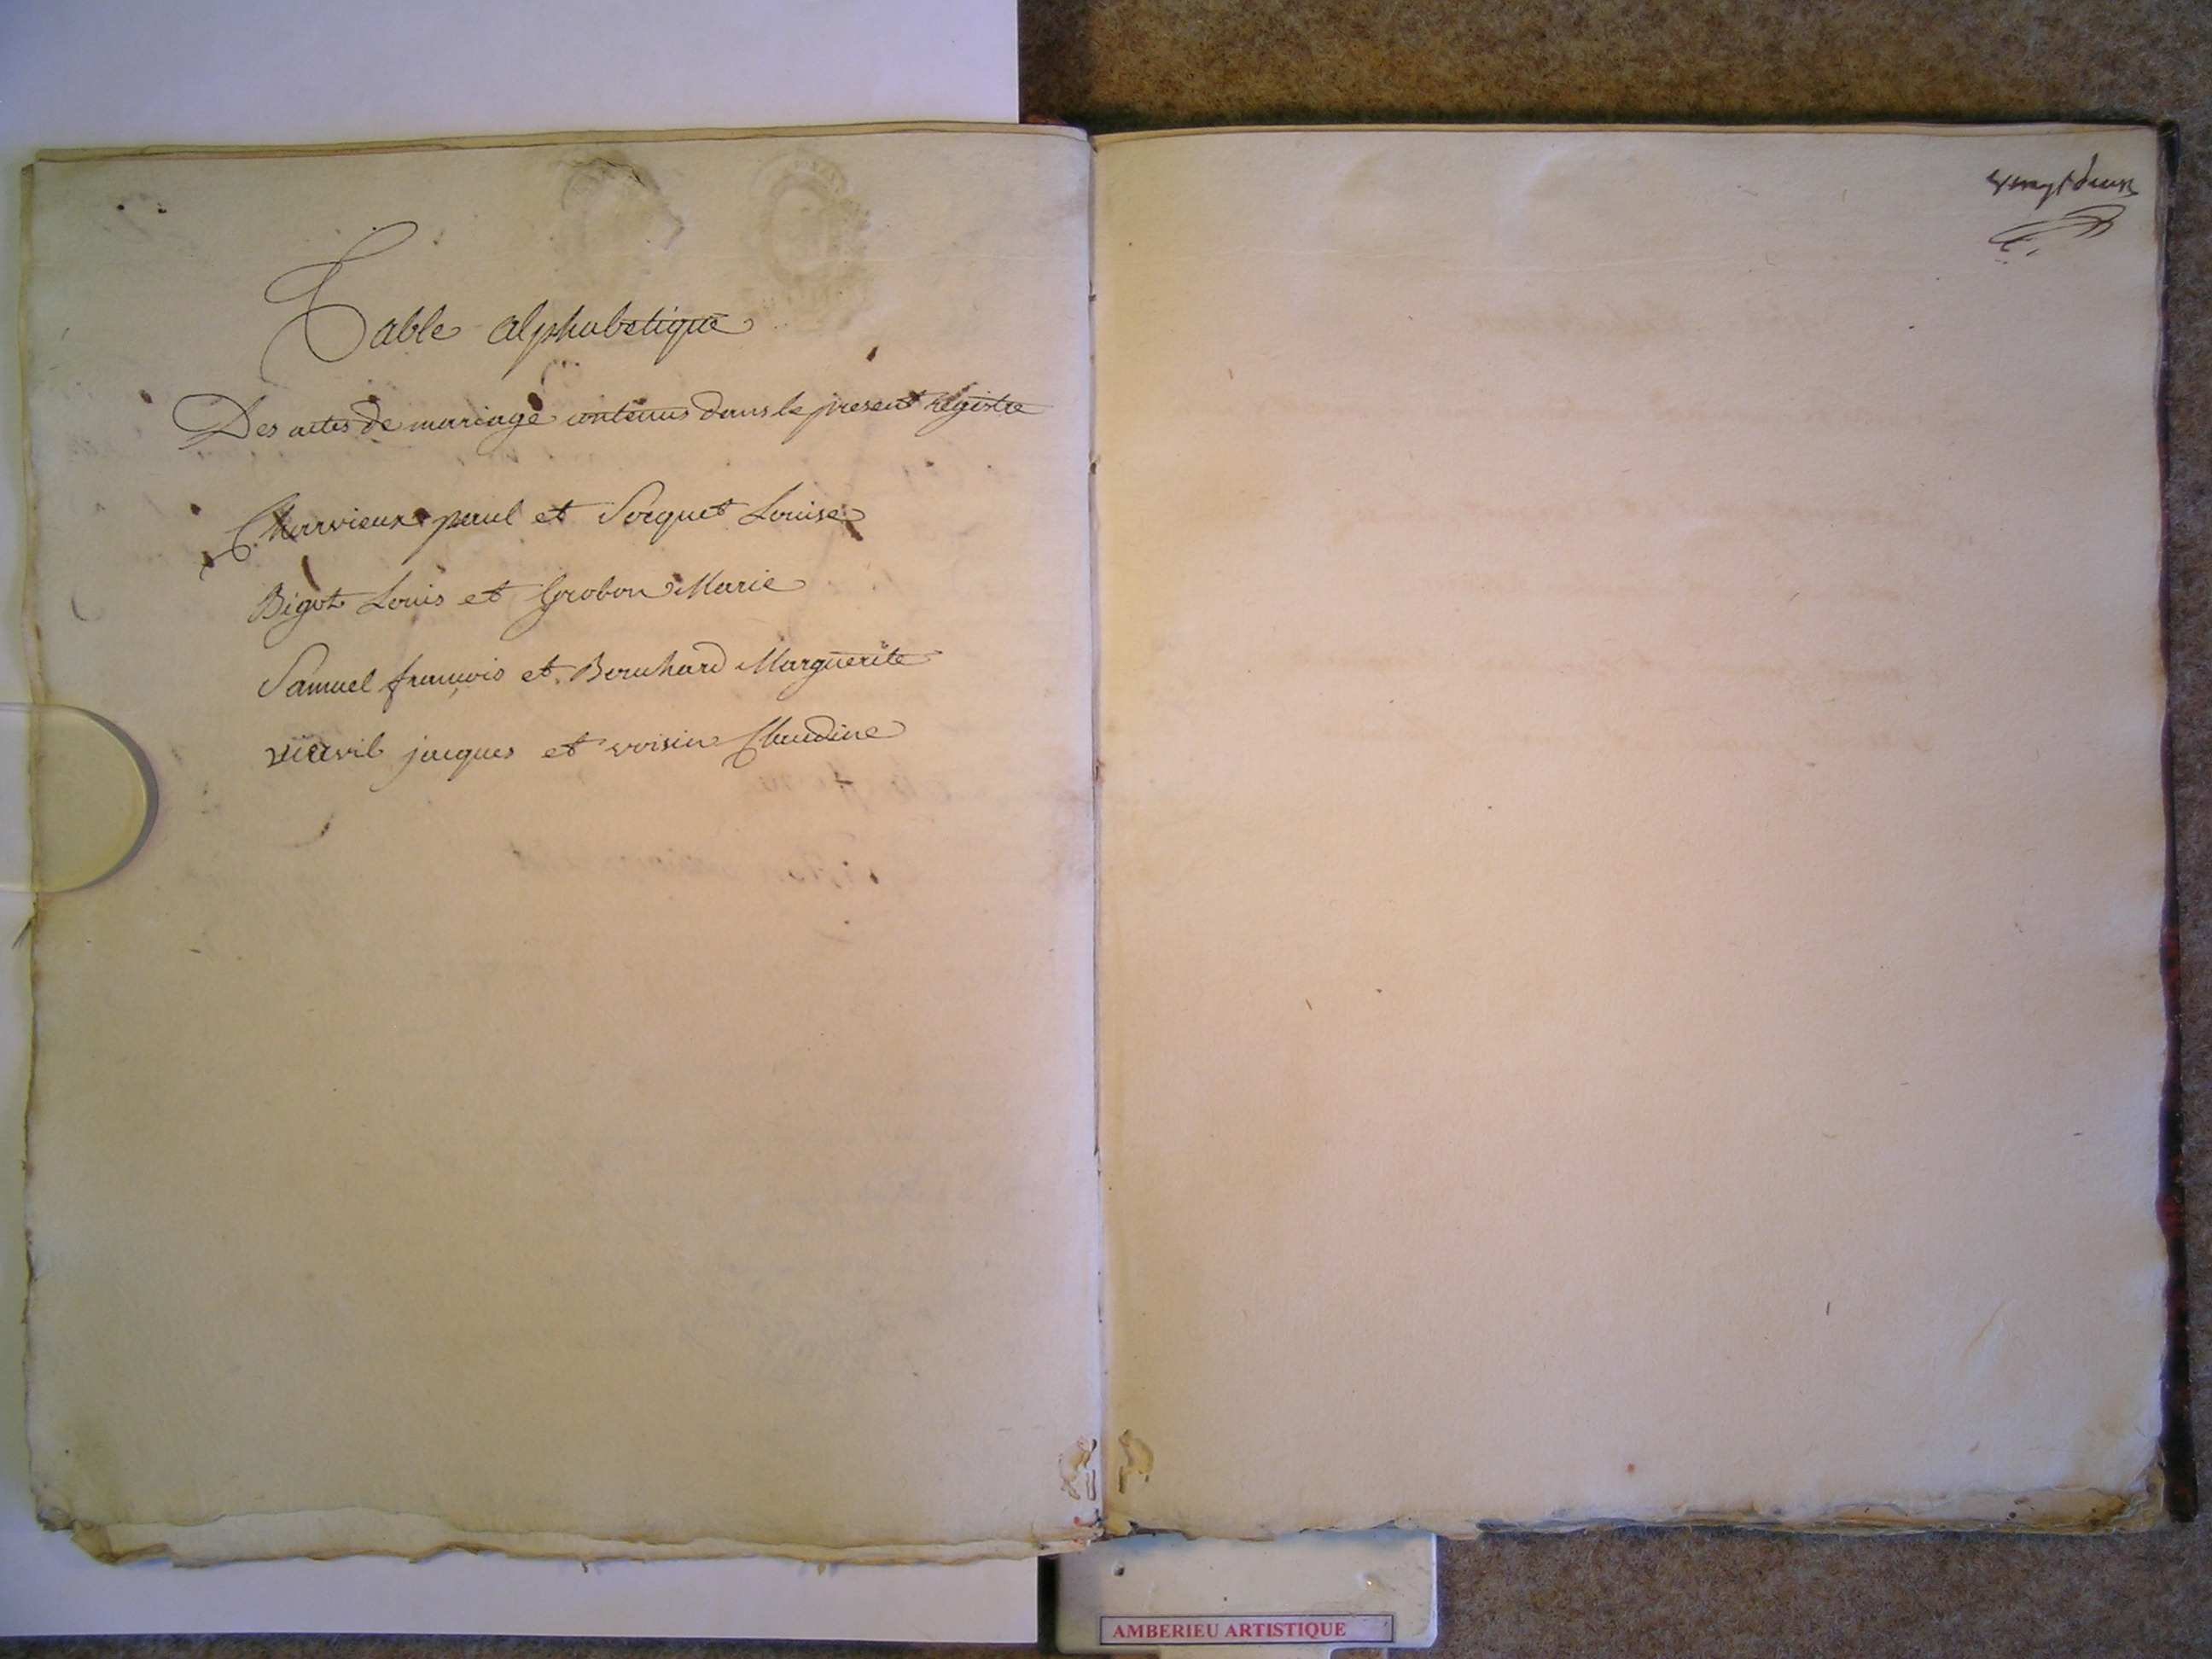 Table alphabetique
Des actes de mariage contenus dans le present registre
Charvieux paul et Sorquet Louise
Bigot Louis et Grobon Marie
Samuel françois et Bernhard Marguerite
jacques et voisin Claudine
vingt deux
AMBERIEU ARTISTIQUE